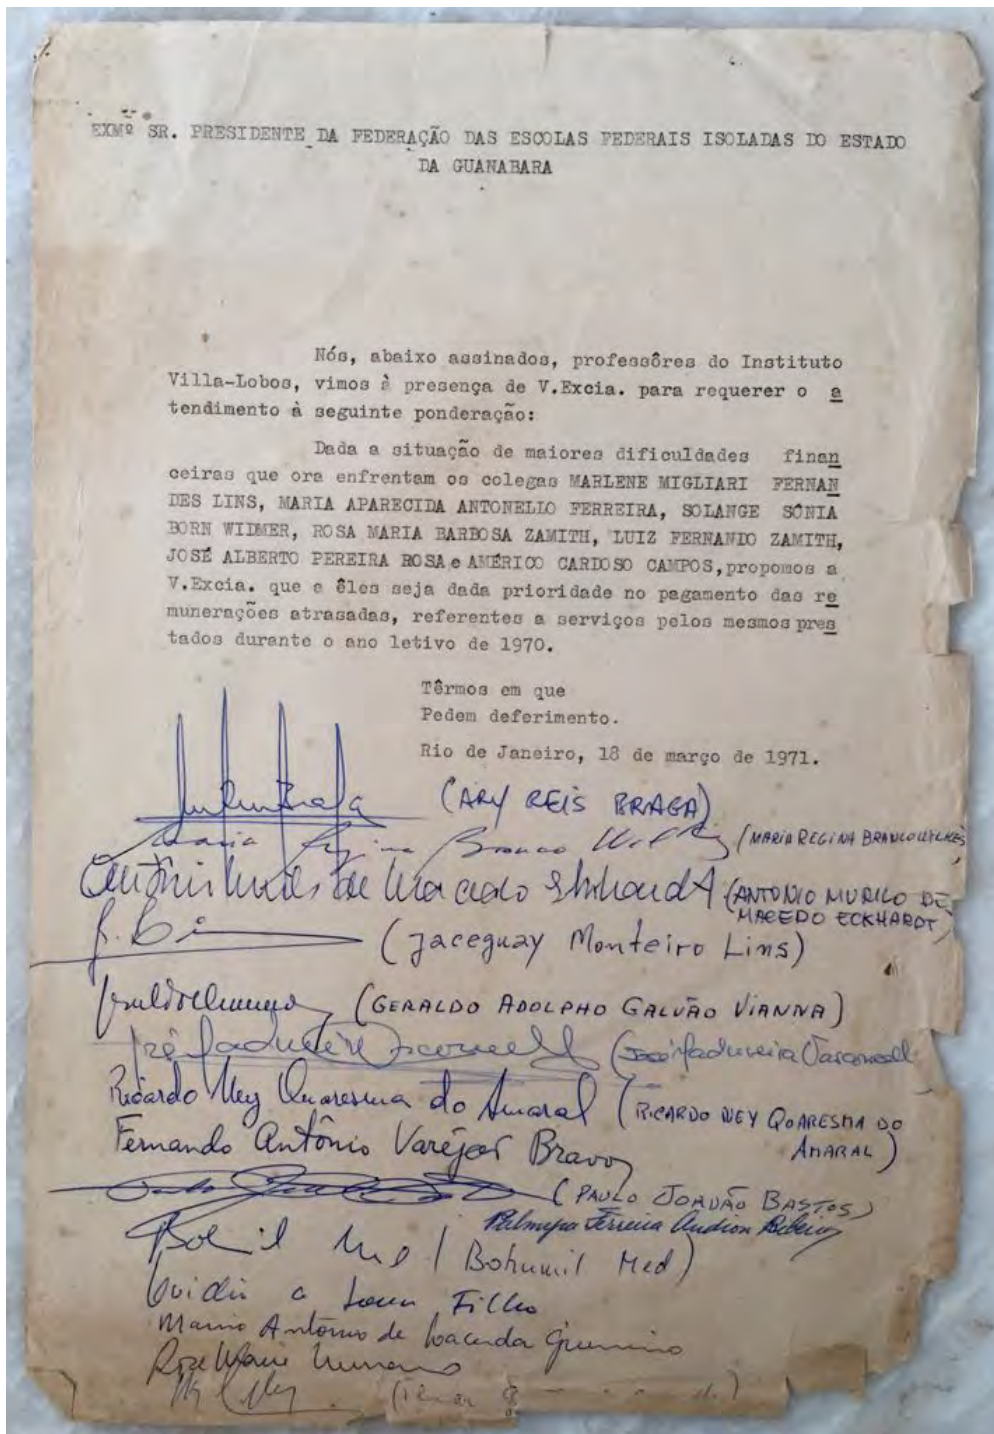 EXMº SR. PRESIDENTE DA FEDERAÇÃO DAS ESCOLAS FEDERAIS ISOLADAS DO ESTADO
DA GUANABARA
Nós, abaixo assinados, professôres do Instituto
Villa-Lobos, vimos à presença de V.Excia. para requerer o a
tendimento à seguinte ponderação:
Dada a situação de maiores dificuldades finan
ceiras que ora enfrentam os colegas MARLENE MIGLIARI FERNAN
DES LINS, MARIA APARECIDA ANTONELLO FERREIRA, SOLANGE SÔNIA
BORN WIDMER, ROSA MARIA BARBOSA ZAMITH, LUIZ FERNANDO ZAMITH,
JOSÉ ALBERTO PEREIRA ROSA e AMÉRICO CARDOSO CAMPOS, propomos a
V.Excia. que a êles seja dada prioridade no pagamento das re
munerações atrasadas, referentes a serviços pelos mesmos pres
tados durante o ano letivo de 1970.
Têrmos em que
Pedem deferimento.
Rio de Janeiro, 18 de março de 1971.
(ARY REIS BRAGA)
Maria Regina Branco (MARIA REGINA BRANCO
(ANTONIO MURILO DE
MACEDO ECKHARDT)
(Jaceguay Monteiro Lins)
(GERALDO ADOLPHO GALVÃO VIANNA)
(José Madureira
Ricardo Ney Quaresma do Amaral (RICARDO NEY QUARESMA DO
AMARAL)
Fernando Antônio Bravo
(PAULO JORDÃO BASTOS)
Ferreira Ribeiro
(Bohumil Med)
Filho
Antônio de Lacerda